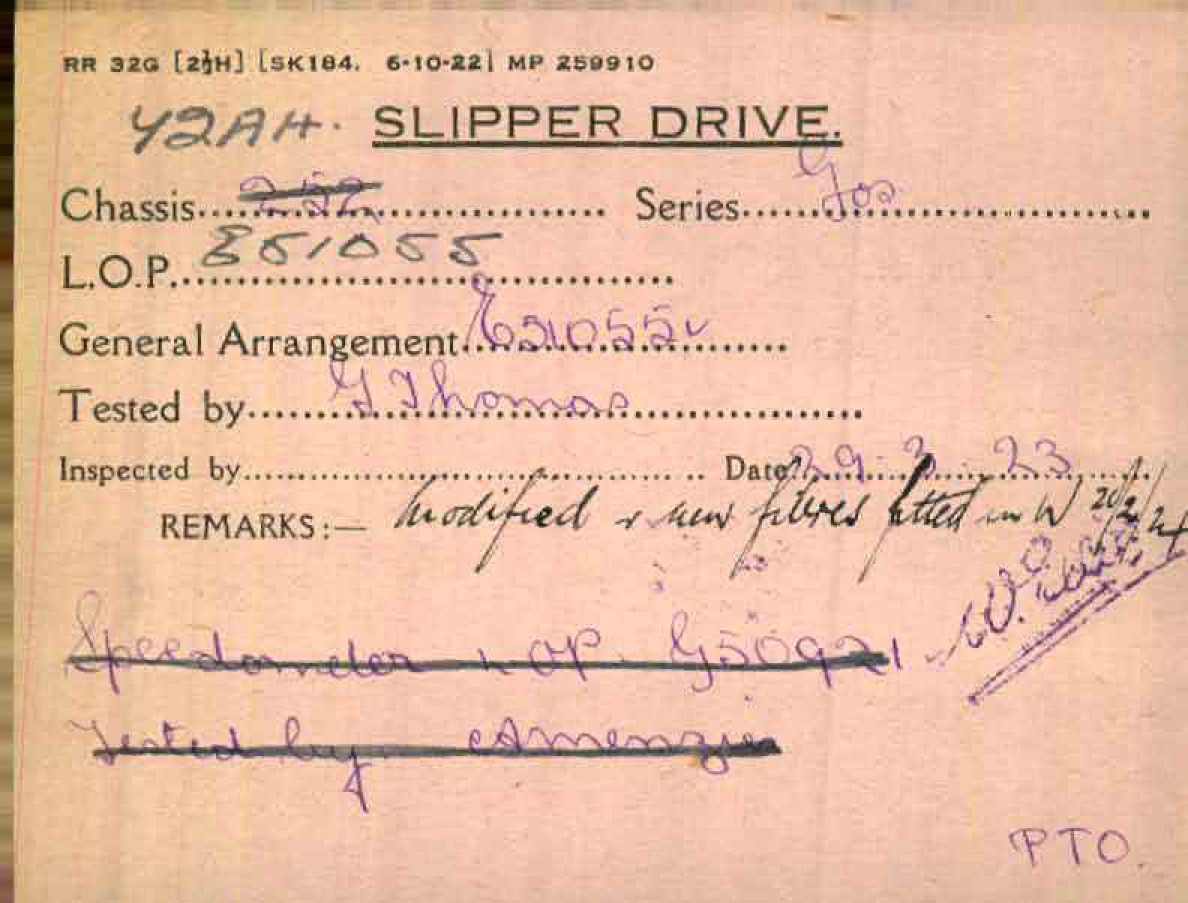 RR 32G [2½H] [SK184. 6-10-22] MP 259910
Y2AH. SLIPPER DRIVE.
Chassis 252 Series Gos
L.O.P. E51055
General Arrangement E51055
Tested by G Thomas
Inspected by Date 29-3-23
REMARKS:— Modified & new fibres fitted in W 20/2/24
Speedometer LOP G50921
Tested by
PTO.